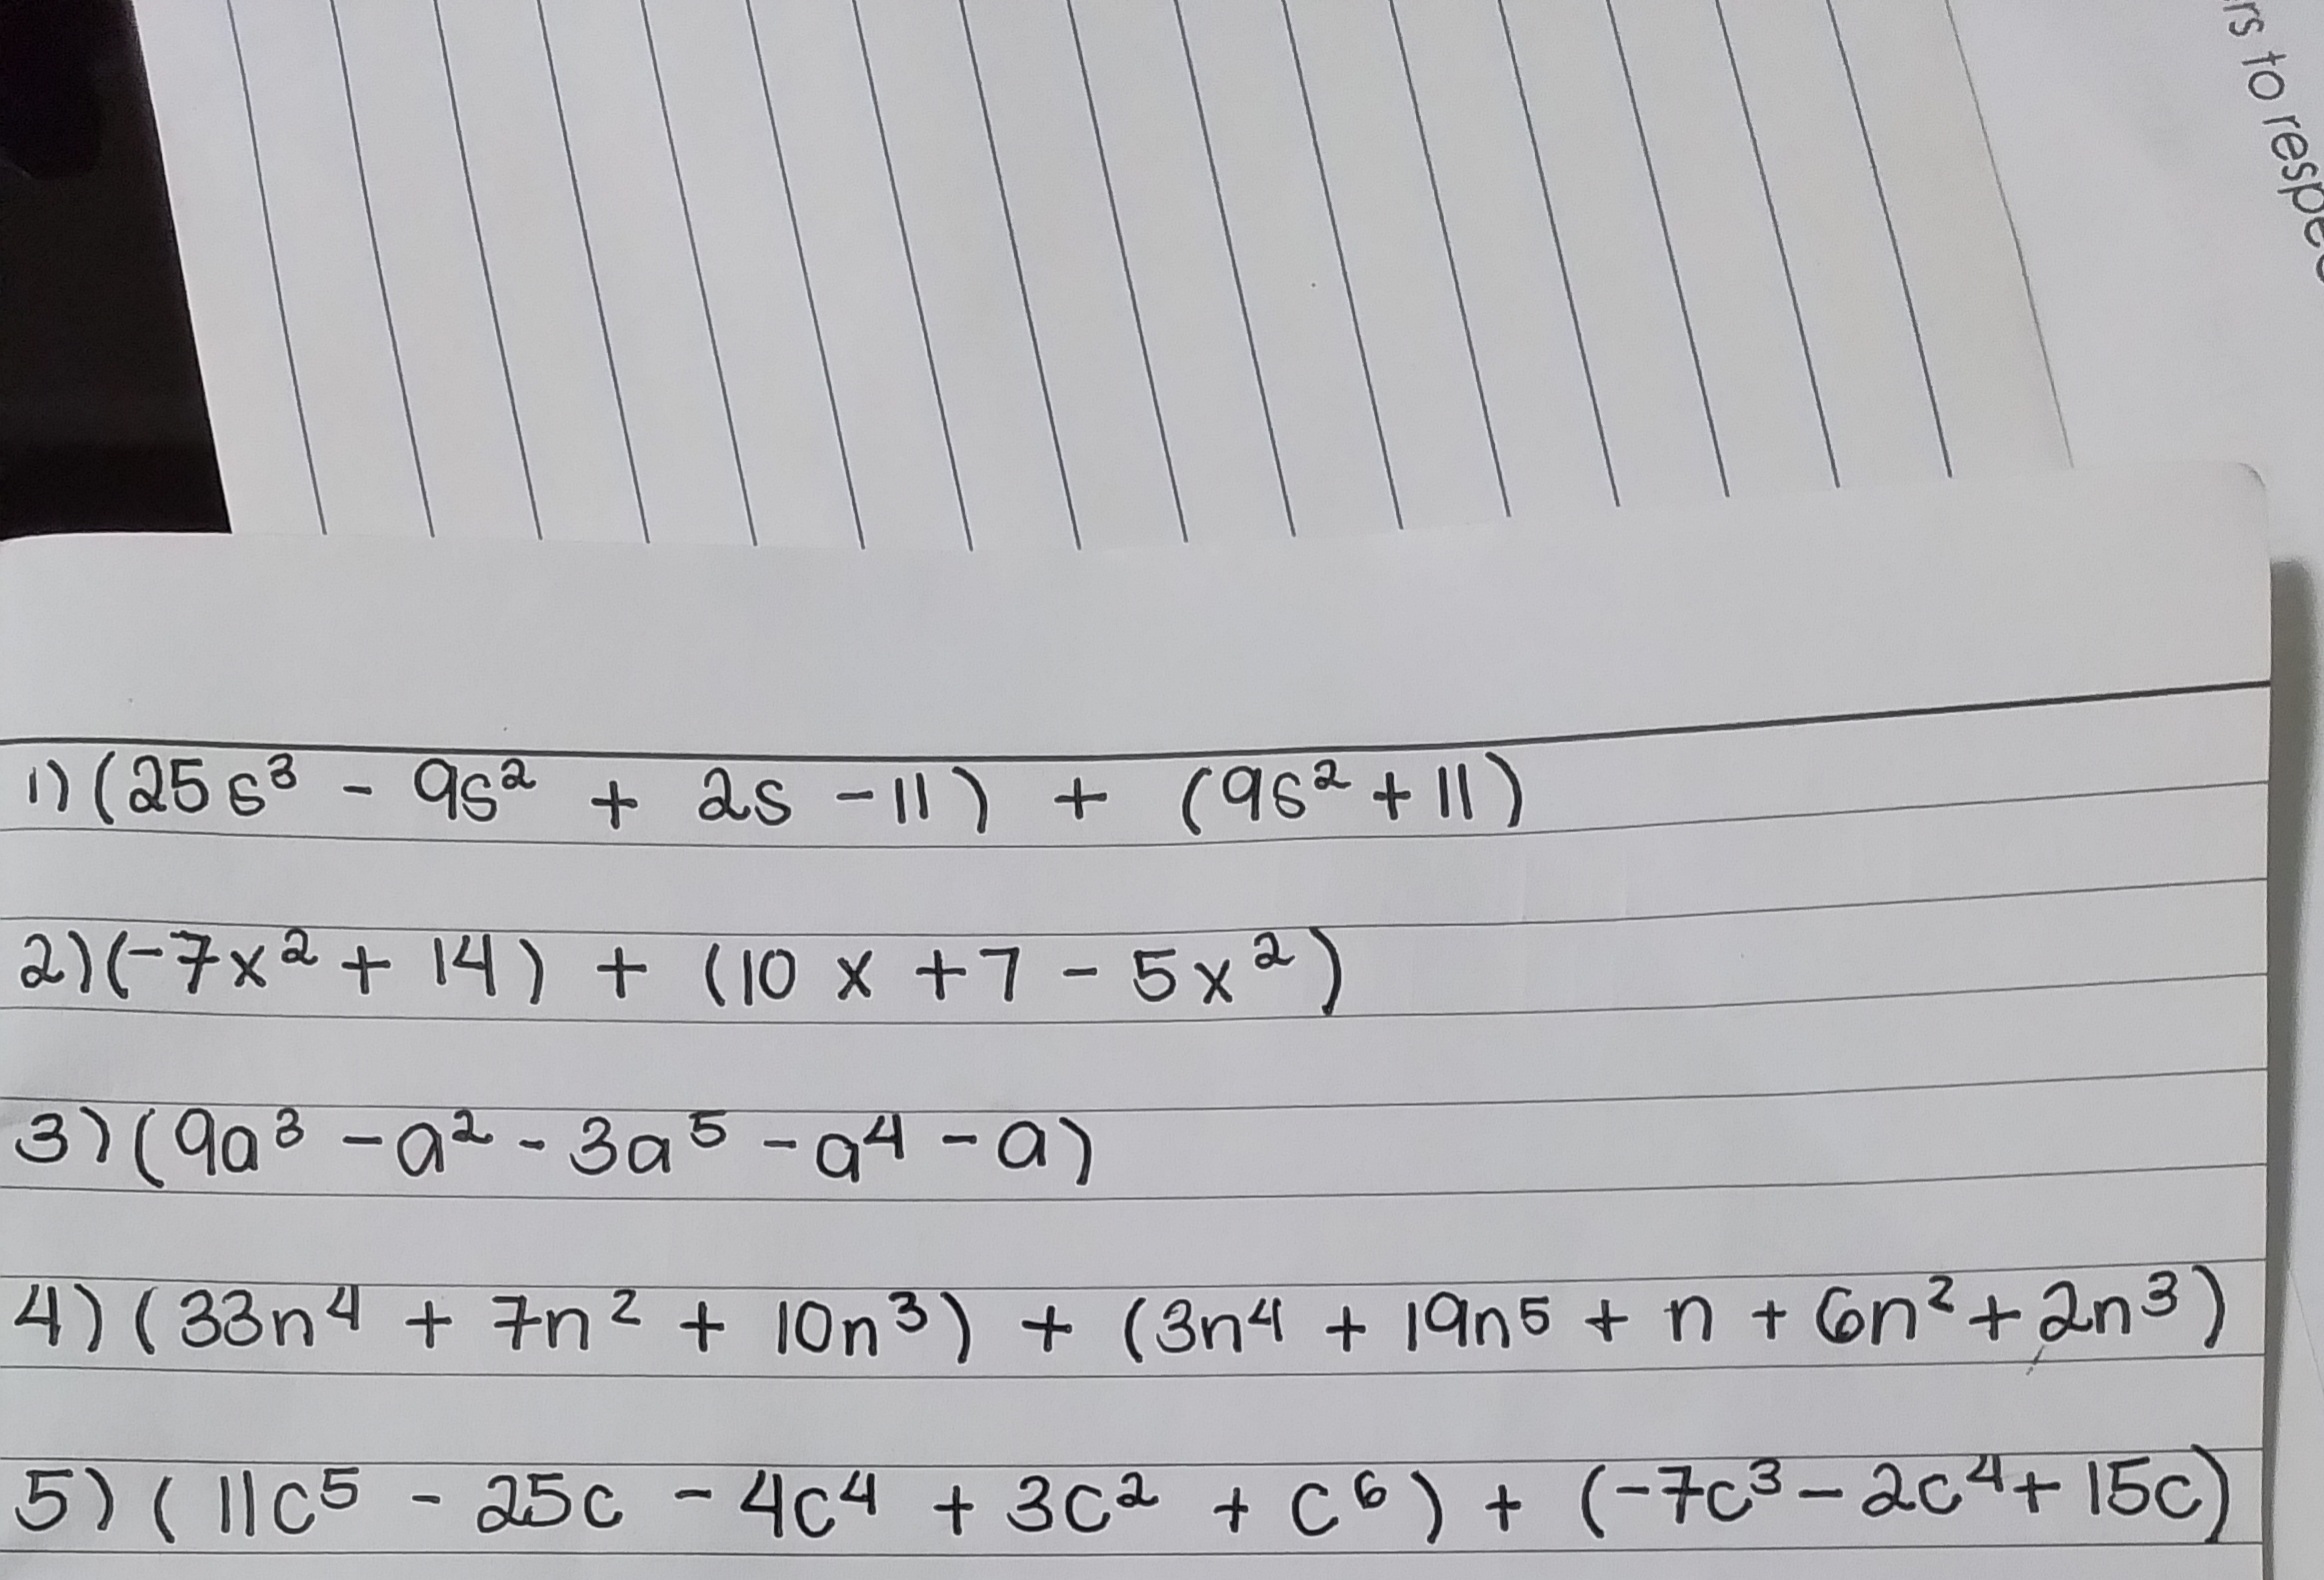 rs to respe
1) (25s³ - 9s² + 2s - 11) + (9s² + 11)
2) (-7x² + 14) + (10x + 7 - 5x²)
3) (9a³ - a² - 3a⁵ - a⁴ - a)
4) (33n⁴ + 7n² + 10n³) + (3n⁴ + 19n⁵ + n + 6n² + 2n³)
5) (11c⁵ - 25c - 4c⁴ + 3c² + c⁶) + (-7c³ - 2c⁴ + 15c)